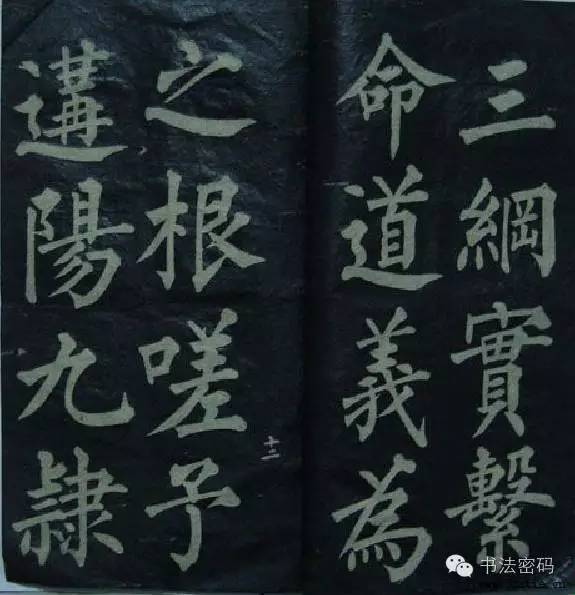 三綱實繫
命道義為
之根嗟予
遘陽九隸
十二
书法密码